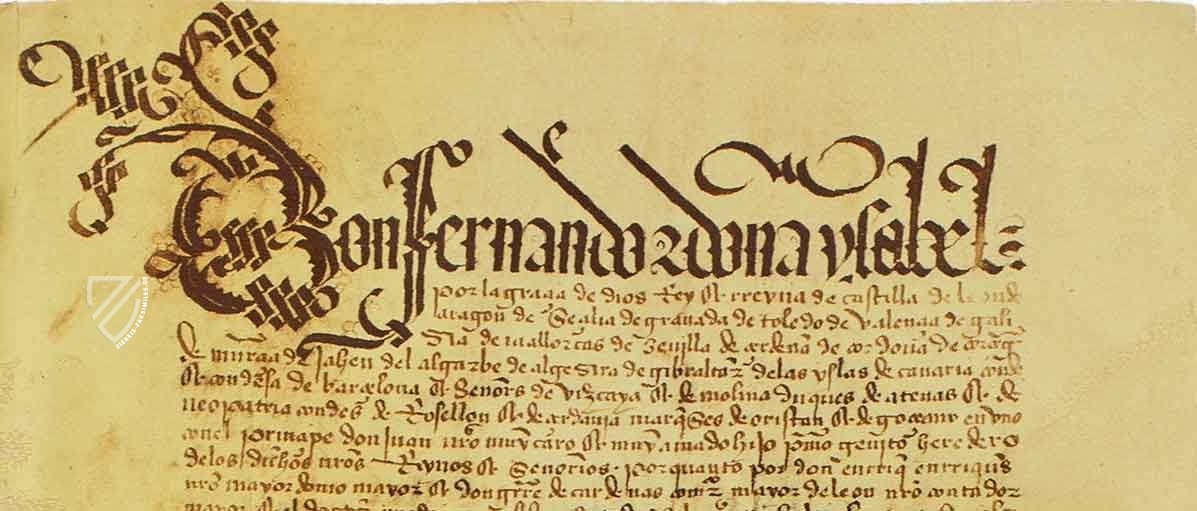 Don fernando z dona ysabel
por la graçia de dios Rey et rreyna de castilla de leon de
aragon de Seçilia de granada de toledo de valençia de gali
zia de mallorcas de Sevilla de çerdeña de cordoua de corçega
de murçia de Jahen del algarbe de algezira de gibraltar delas yslas de canaria conde
et condesa de barçelona et Señores de vizcaya et de molina duques de atenas et de
neopatria condes de Rosellon et de çerdania marqses de oristan et de goçeano en vno
con el prinçipe don Juan nro muy caro et muy amado hijo primo genito heredero
delos dichos nros Reynos et Señorios. por quanto por don enrriq enrriqus
nro mayordomo mayor et don gtrre de cardenas comr mayor de leon nro contador
mayor
ZIEREIS-FAKSIMILES.DE